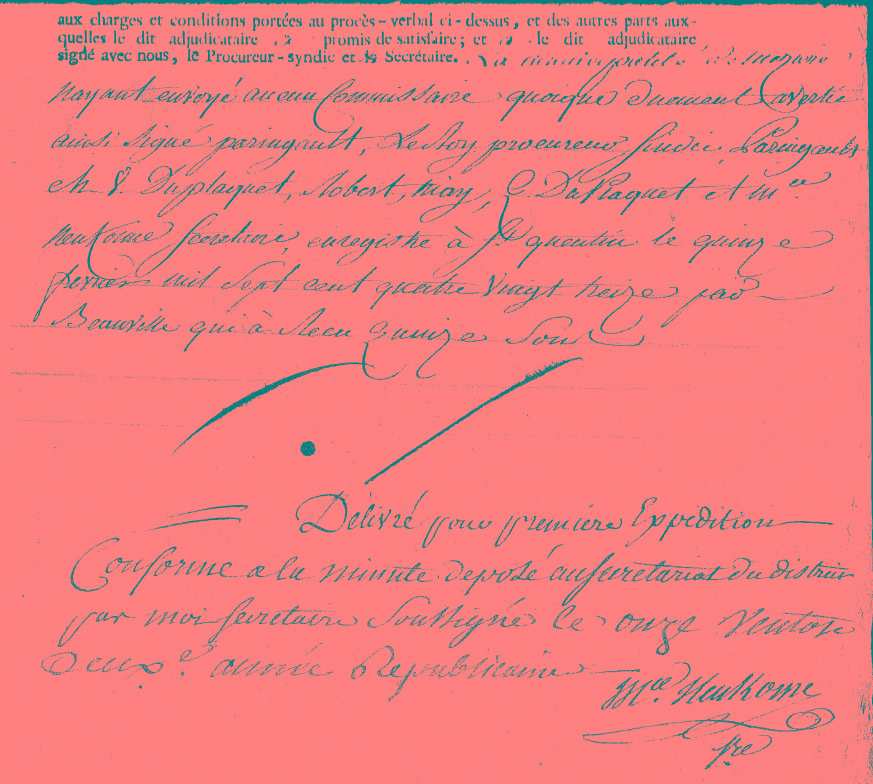 aux charges et conditions portées au procès-verbal ci-dessus, et des autres parts aux-
quelles le dit adjudicataire a promis de satisfaire; et a le dit adjudicataire
signé avec nous, le Procureur-syndic et le Secrétaire. La municipalité de
n'ayant envoyé aucun Commissaire quoique duement avertie
ainsi signé paringault, LeRoy procureur sindic, Paringault
ch V. Duplaquet, Robert, niay, C. DuPlaquet et m.ce
Neukome Secretaire, enregistré à St quentin le quinze
fevrier mil Sept cent quatre Vingt treize par
Beauville qui à Recu quinze Sous
Délivré pour premiere Expedition
Conforme a la minute deposé au secretariat du district
par moi secretaire Soussigné le onze Ventose
Deuxe. année Republicaine
Mce. Neukome
Sre